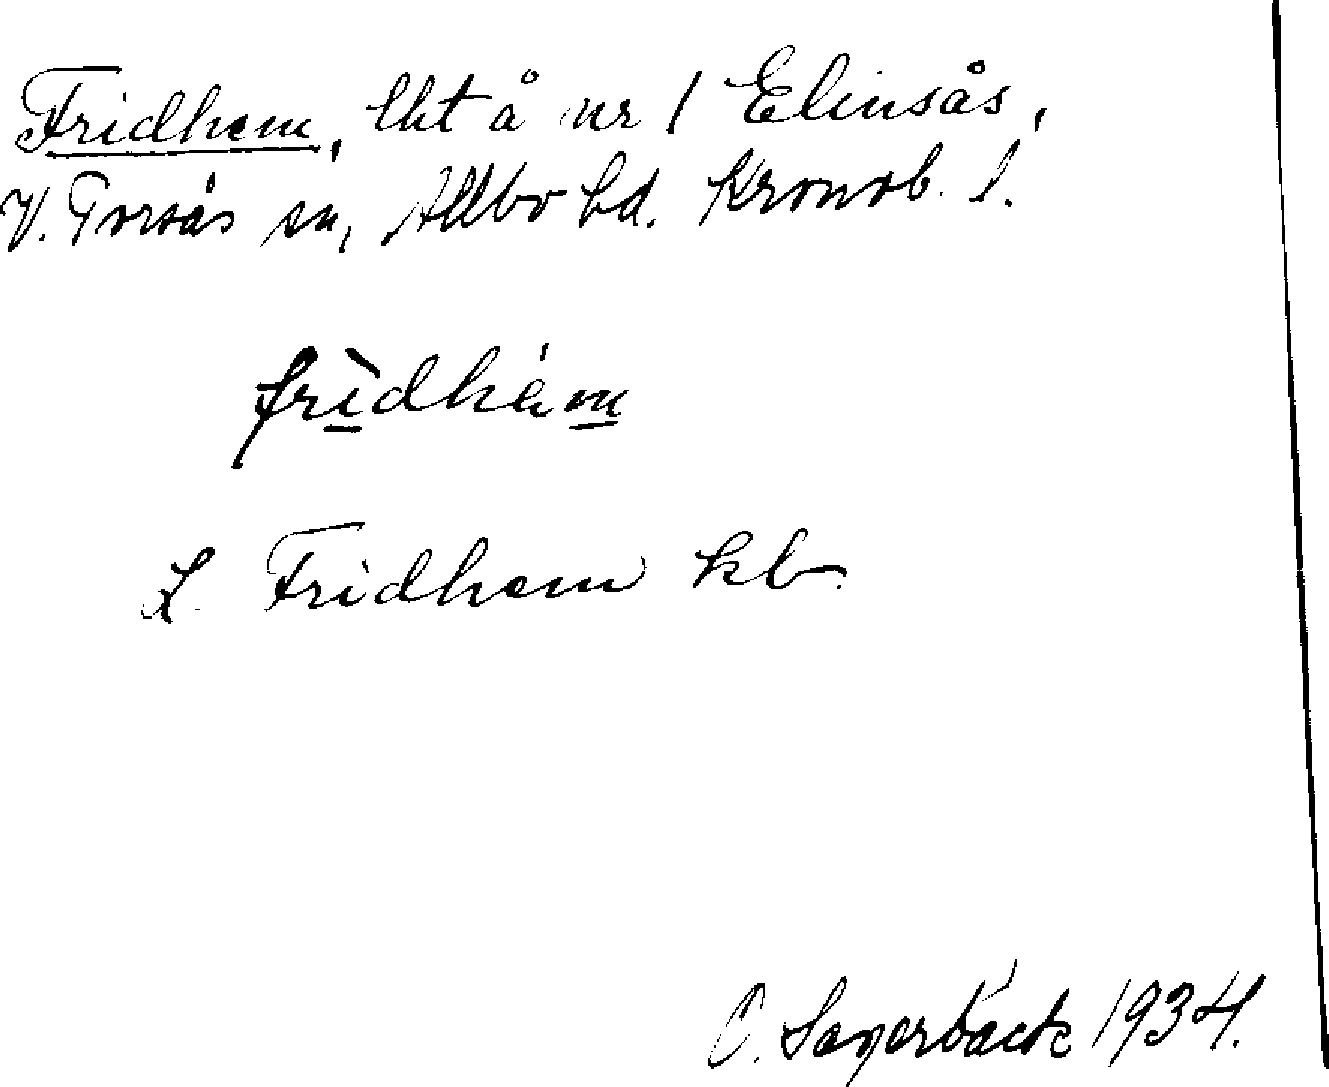 Fridhem, lht å nr 1 Elinsås,
V. Torsås sn, Allbo hd. Kronob. l.
frìdhém
L. Fridhem kb.
O. Sagerbäck 1934.